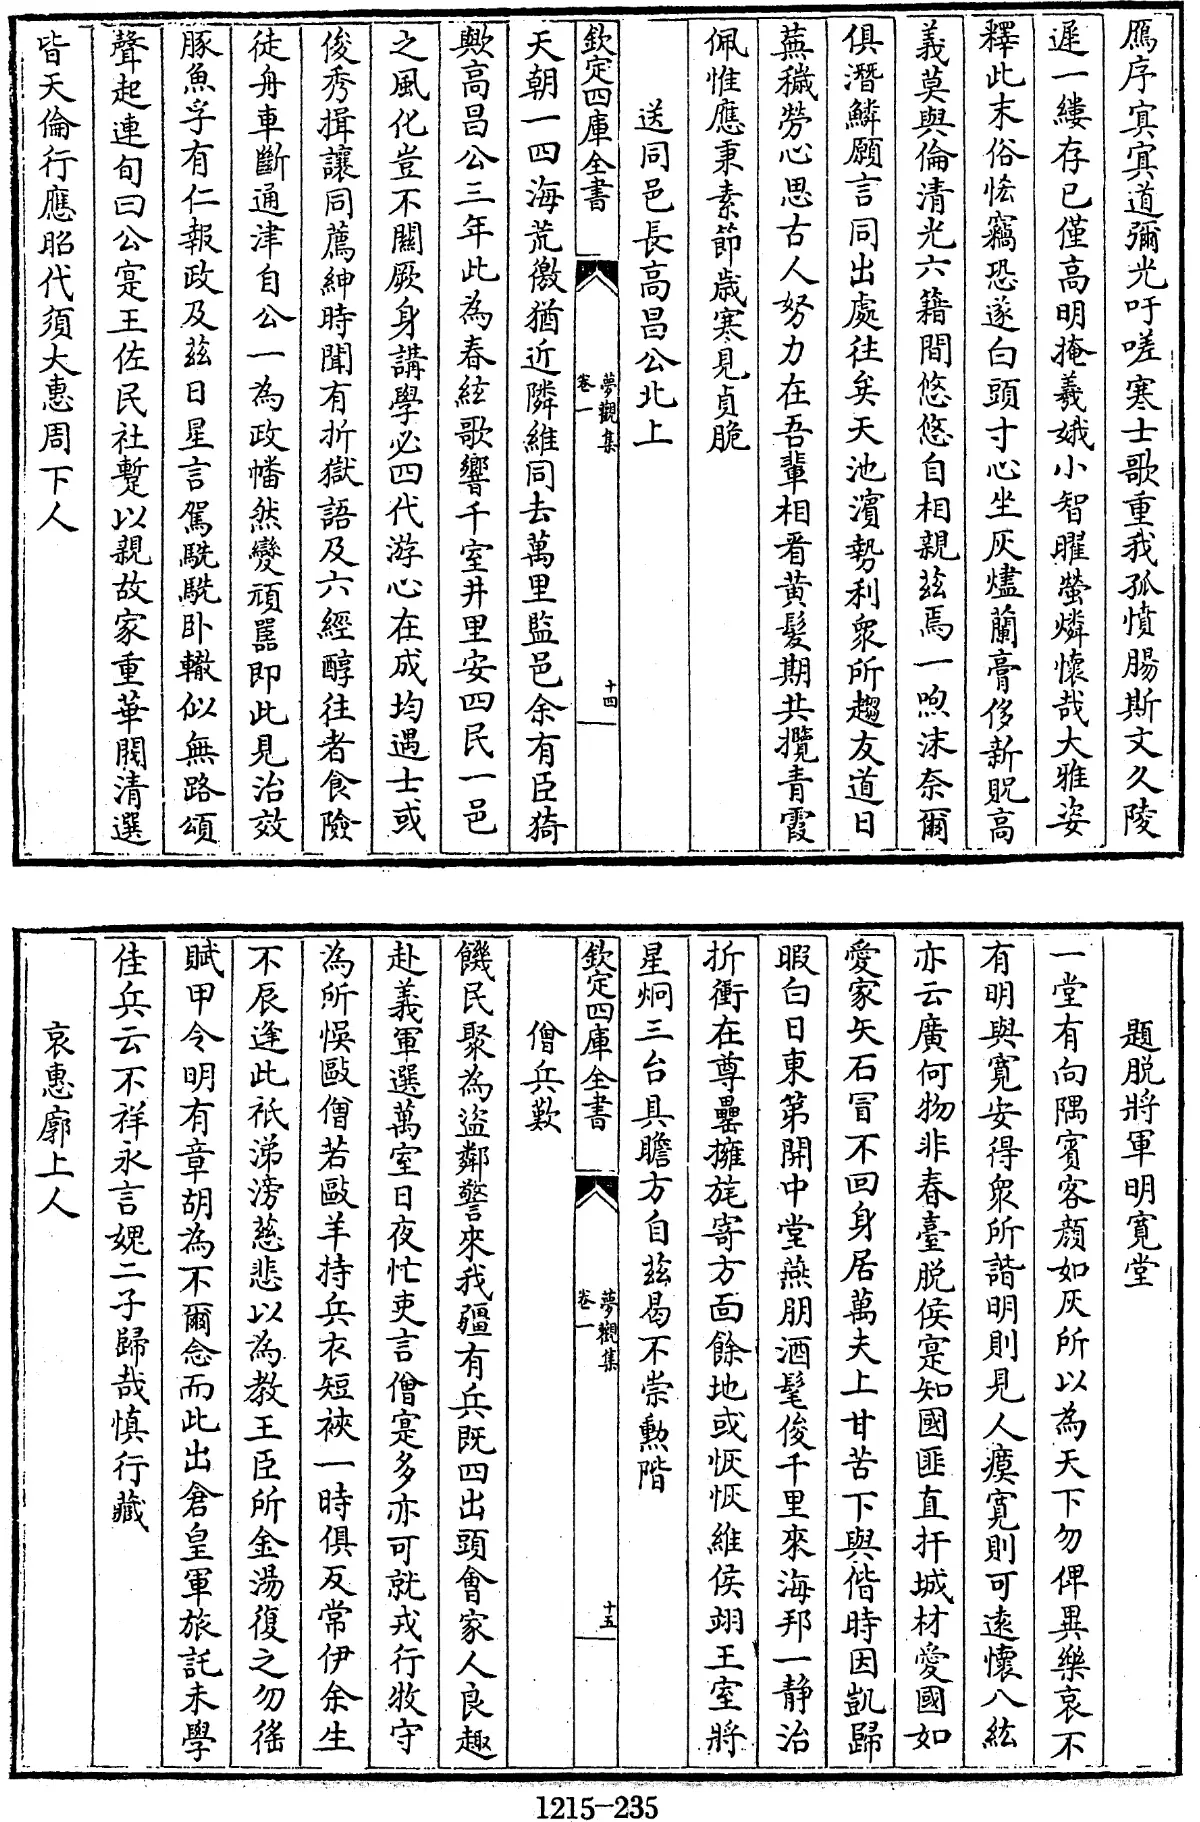 鴈序寘寘道彌光吁嗟寒士歌重我孤憤腸斯文久陵
遲一縷存已僅高明掩羲娥小智曜螢爝懷哉大雅姿
釋此末俗悋竊恐遂白頭寸心坐灰燼蘭膏侈新貺高
義莫與倫清光六籍間悠悠自相親茲焉一喣沫奈爾
俱潛鱗願言同出處往矣天池濱勢利衆所趨友道日
蕪穢勞心思古人努力在吾輩相看黄髮期共攬青霞
佩惟應秉素節歳寒見貞脆
送同邑長高昌公北上
欽定四庫全書
夢觀集
卷一
十四
天朝一四海荒徼猶近隣維同去萬里監邑余有臣猗
歟高昌公三年此為春絃歌響千室井里安四民一邑
之風化豈不關厥身講學必四代游心在成均遇士或
俊秀揖讓同薦紳時聞有折獄語及六經醇往者食險
徒舟車斷通津自公一為政幡然變頑嚚即此見治效
豚魚孚有仁報政及茲日星言駕駪駪卧轍似無路頌
聲起連旬曰公寔王佐民社蹔以親故家重華閥清選
皆天倫行應昭代須大惠周下人
題脱將軍明寛堂
一堂有向隅賓客顔如灰所以為天下勿俾異樂哀不
有明與寛安得衆所諧明則見人瘼寛則可逺懷八紘
亦云廣何物非春臺脱侯寔知國匪直扞城材愛國如
愛家矢石冒不回身居萬夫上甘苦下與偕時因凱歸
暇白日東第開中堂燕朋酒髦俊千里來海邦一静治
折衝在尊罍擁旄寄方面餘地或恢恢維侯翊王室將
星烱三台具瞻方自茲曷不崇勲階
欽定四庫全書
夢觀集
卷一
十五
僧兵歎
饑民聚為盜鄰警來我疆有兵既四出頭會家人良趣
赴義軍選萬室日夜忙吏言僧寔多亦可就戎行牧守
為所悮敺僧若敺羊持兵衣短裌一時俱反常伊余生
不辰逢此祇涕滂慈悲以為教王臣所金湯復之勿徭
賦甲令明有章胡為不爾念而此出倉皇軍旅託未學
佳兵云不祥永言媿二子歸哉慎行藏
哀惠廓上人
1215-235